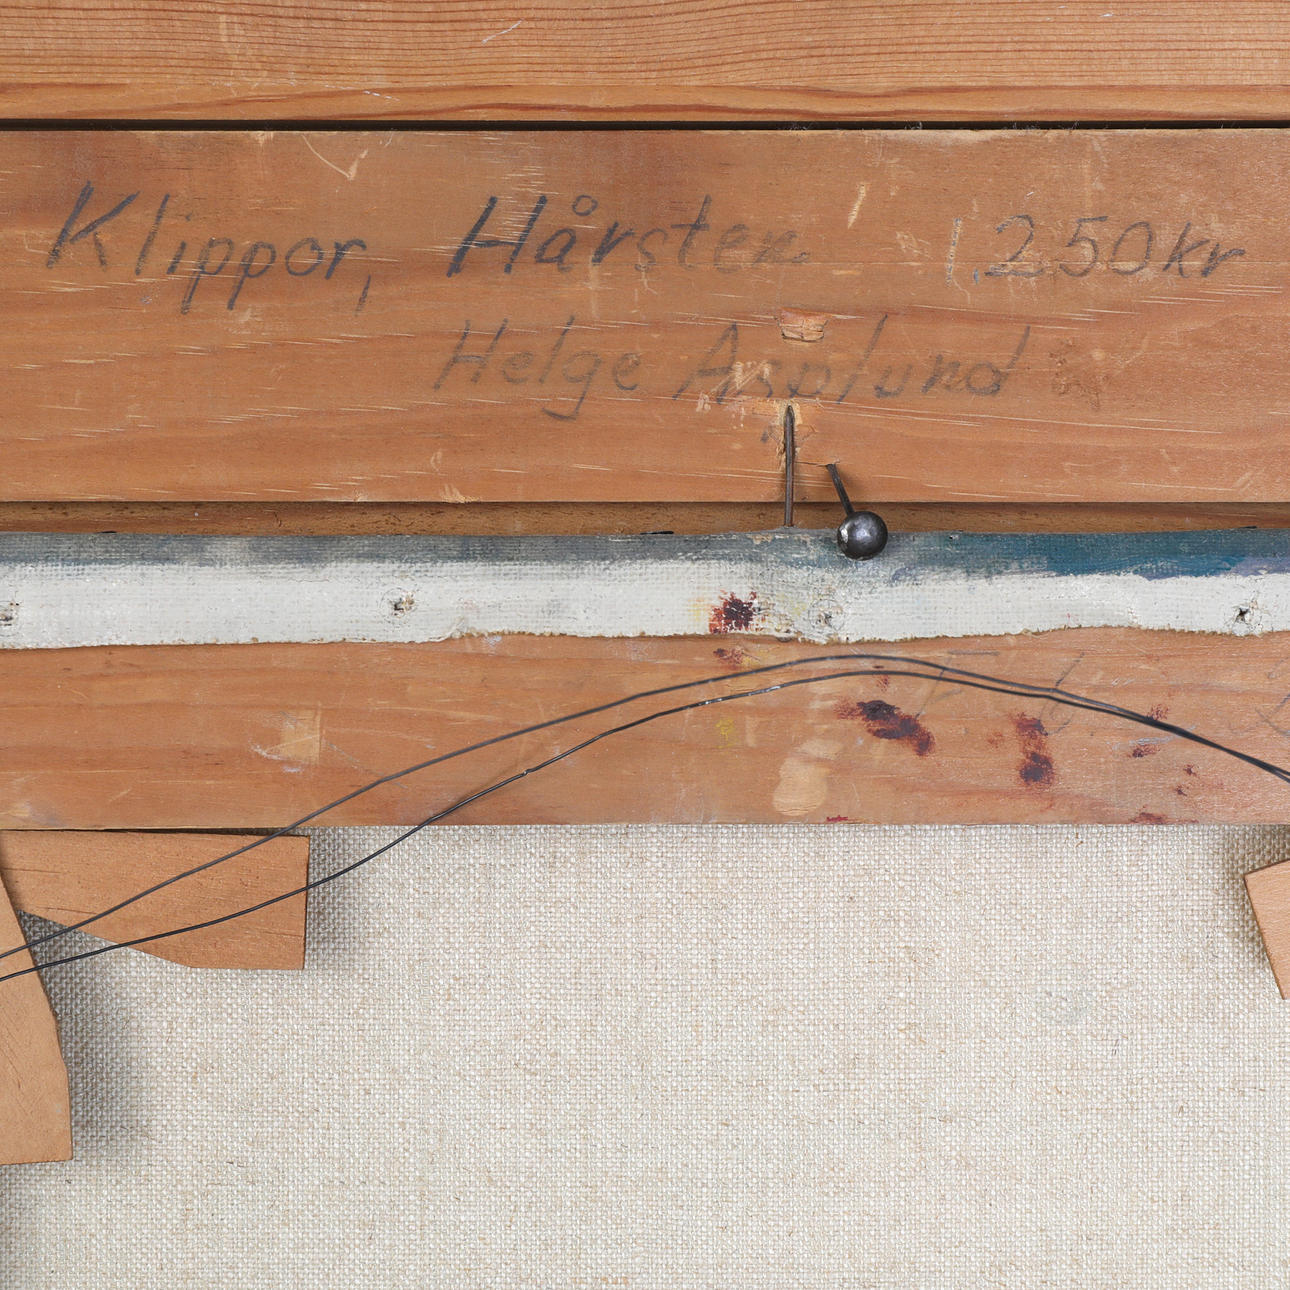 Klippor, Hårsten 1,250kr
Helge Asplund